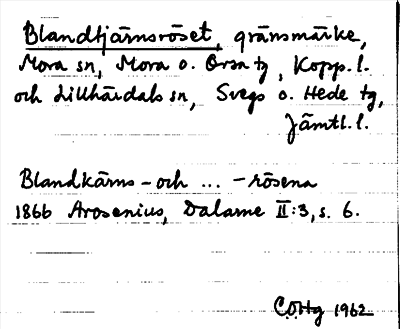 Blandtjärnsröset, gränsmärke,
Mora sn, Mora o. Orsa tg, Kopp. l.
och Lillhärdals sn, Svegs o. Hede tg,
Jämtl. l.
Blandkärns - och ... - rösena
1866 Arosenius, Dalarne II:3, s. 6.
CÖHg 1962